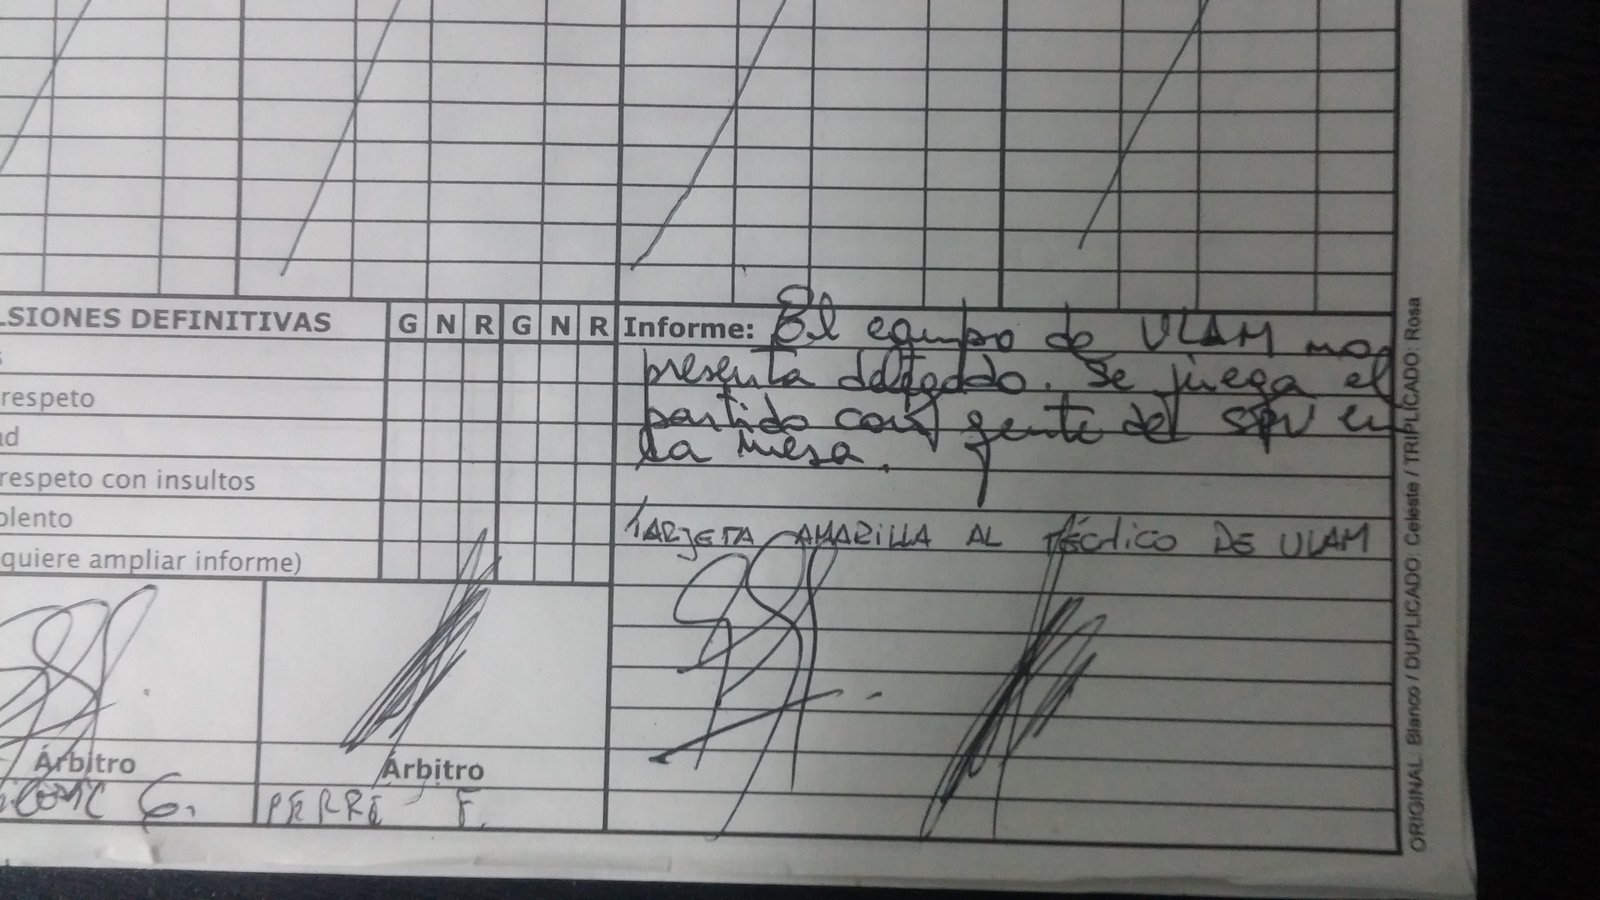 LSIONES DEFINITIVAS G N R G N R
respeto
ad
respeto con insultos
olento
quiere ampliar informe)
Informe: El equipo de ULAM no
presenta delegado. Se juega el
partido con gente del SPV en
la mesa.
TARJETA AMARILLA AL TÉCNICO DE ULAM
Árbitro Árbitro
G. PERRÉ F.
ORIGINAL: Blanco / DUPLICADO: Celeste / TRIPLICADO: Rosa